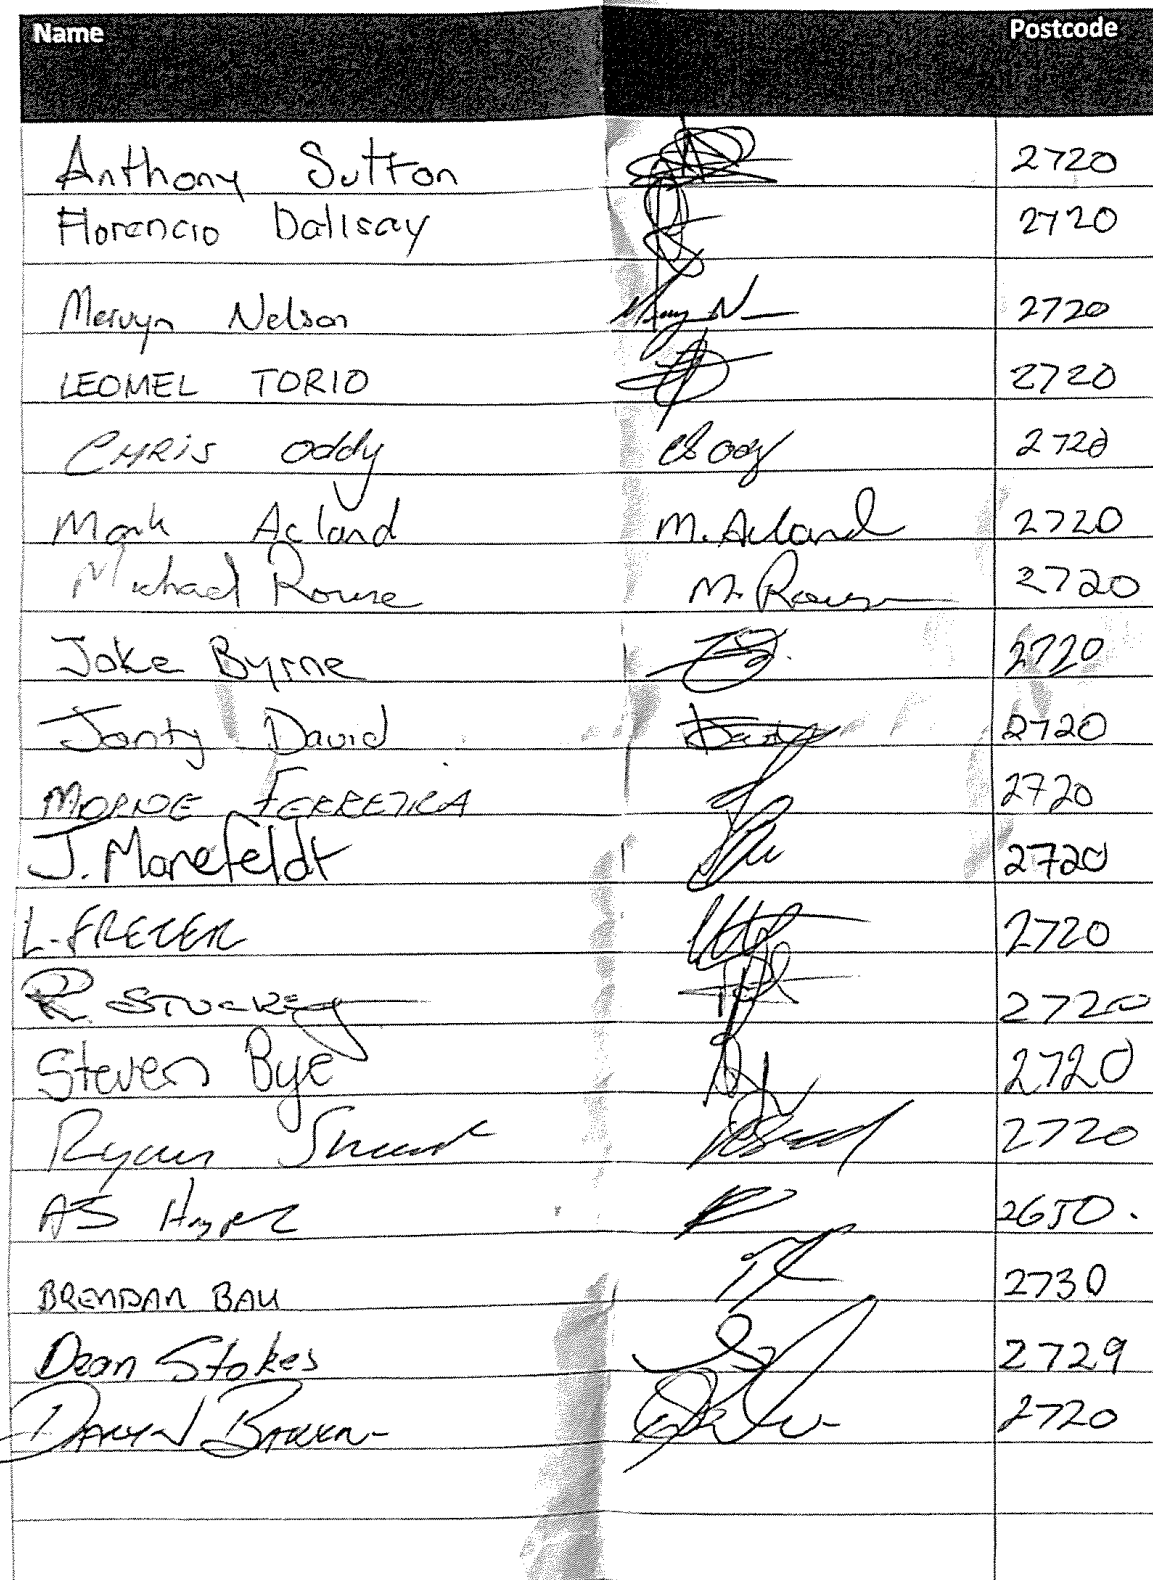 Name Postcode
Anthony Sutton 2720
Florencio Dalisay 2720
Mervyn Nelson 2720
LEOMEL TORIO 2720
CHRIS Oddy 2720
Mark Acland M. Acland 2720
Michael Rouse M. Rouse 2720
Jake Byrne 2720
Jonty David 2720
MORNE FERREIRA 2720
J. Manefeldt 2720
L. 2720
R. STUCKEY 2720
Steven Bye 2720
Ryan 2720
AS 2650.
BRENDAN 2730
Dean Stokes 2729
2720